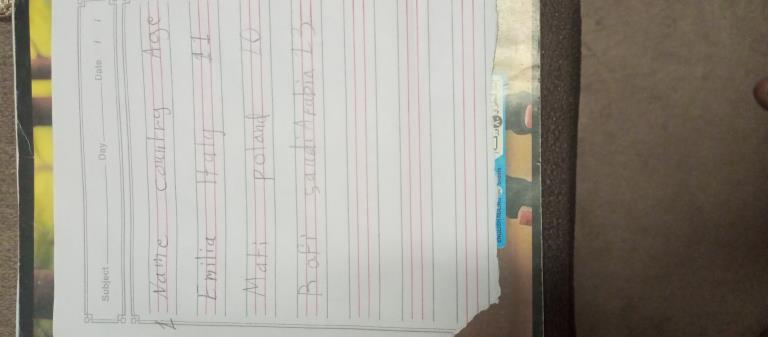 Subject Day Date / /
Name country Age
Emilia Italy 11
Mati poland 10
Rafi saudi Arabia 13